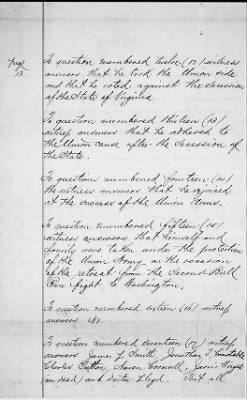 Page
13.
To question numbered twelve (12) witness
answers that he took the Union side
and that he voted against the Secession
of the State of Virginia
To question numbered thirteen (13)
witness answers that he adhered to
the Union cause after the Secession of
the State.
To question numbered fourteen (14)
the witness answers that he rejoiced
at the success of the Union Arms.
To question numbered fifteen (15)
witness answers that himself and
family were taken under the protection
of the Union Army on the occasion
of the retreat from the Second Bull
Run fight to Washington.
To question numbered sixteen (16) witness
answers No.
To question numbered seventeen (17) witness
answers James L. Smith, Jonathan T.
Charles Aaron
(an dead) and Lloyd. That all